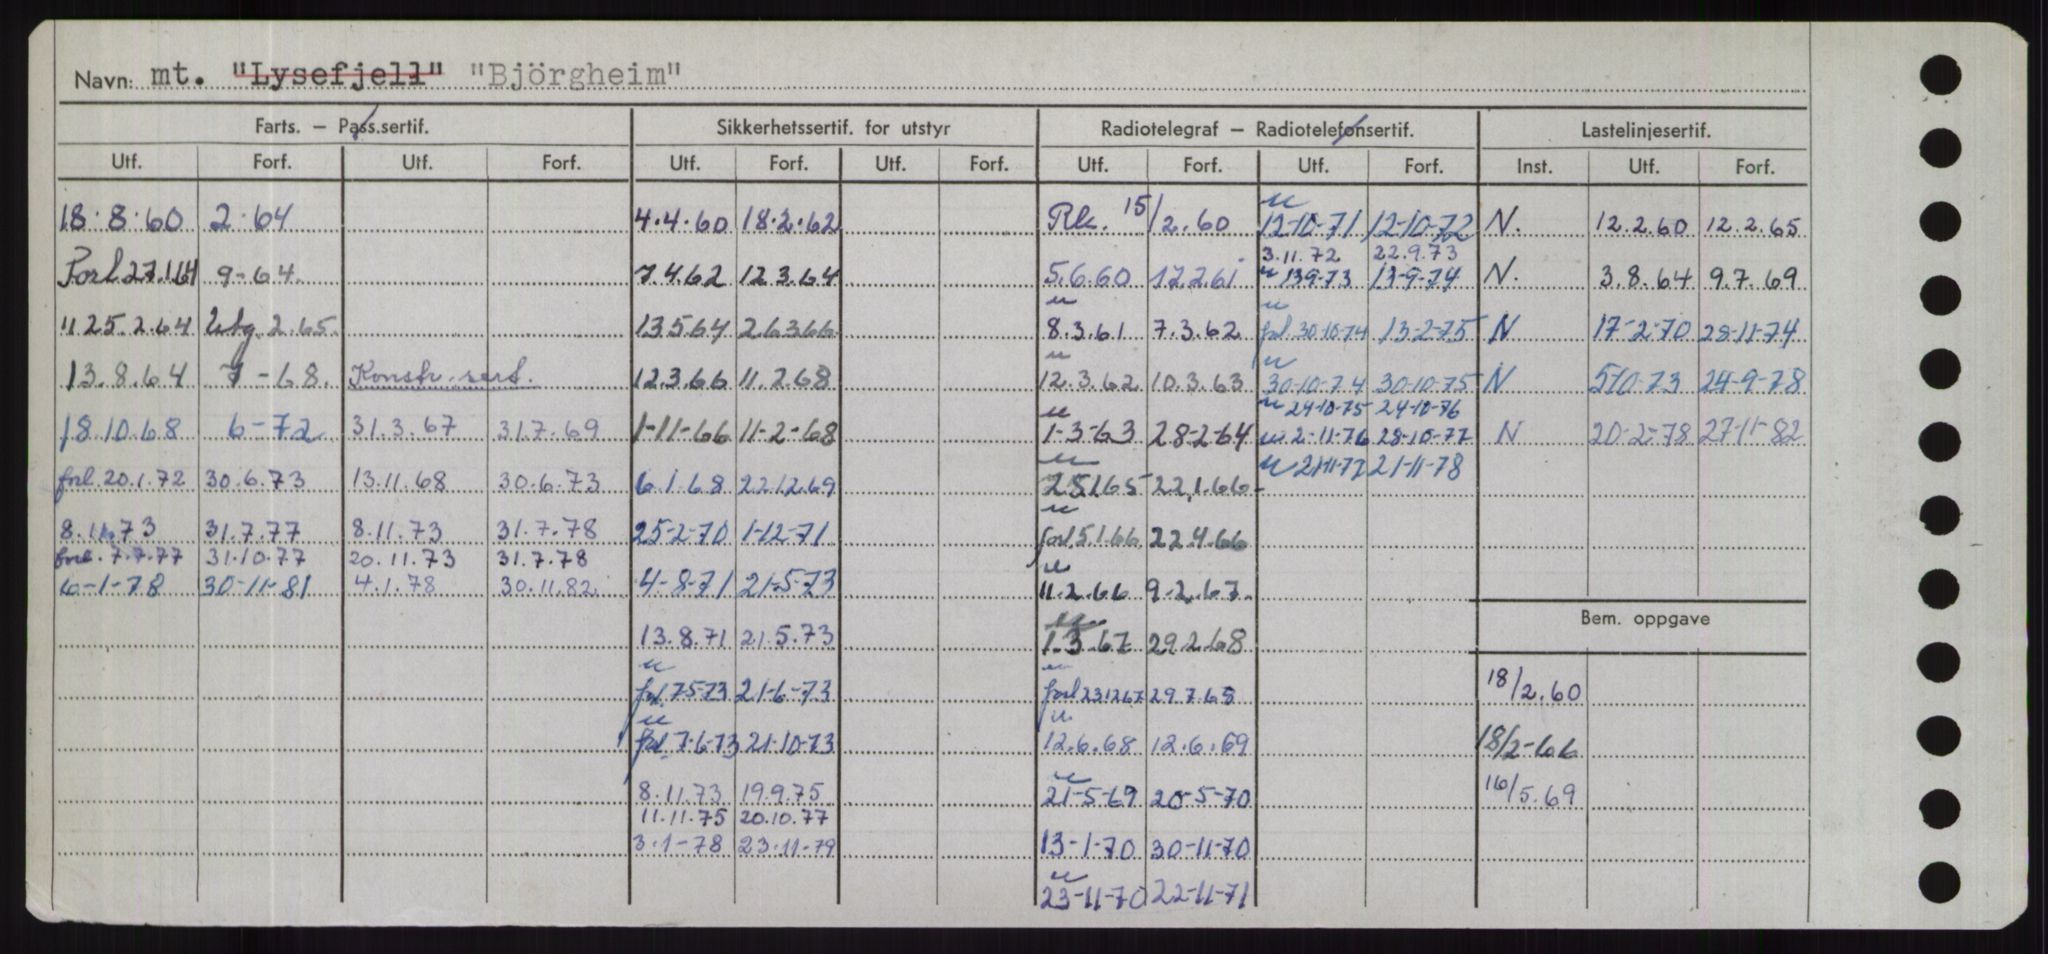 Navn: mt. "Lysefjell" "Björgheim"
Farts. – Pass.sertif. Sikkerhetssertif. for utstyr Radiotelegraf – Radiotelefonsertif. Lastelinjesertif.
Utf. Forf. Utf. Forf. Utf. Forf. Utf. Forf. Utf. Forf. Utf. Forf. Inst. Utf. Forf.
18.8.60 2.64 4.4.60 18.2.62 Rk. 15/2.60 12-10-71 12-10-72 N. 12.2.60 12.2.65
3.11.72 22.9.73
Forl 27.1.64 9-64. 7.4.62 12.3.64 5.6.60 17.2.61 " 13-9-73 13-9-74 N. 3.8.64 9.7.69
" 25.2.64 Utg. 2.65. 13.5.64 26.3.66 8.3.61 7.3.62 forl. 30-10-74 13-2-75 N 17-2-70 28-11-74
13.8.64 7-68. Konstr. sert. 12.3.66 11.2.68 12.3.62 10.3.63 30-10-74 30-10-75 N 5-10-73 24-9-78
" 24-10-75 24-10-76
18.10.68 6-72 31.3.67 31.7.69 1-11-66 11-2-68 1-3-63 28-2-64 " 2-11-76 28-10-77 N 20-2-78 27-11-82
" 21-11-77 21-11-78
forl. 20.1.72 30.6.73 13.11.68 30.6.73 6.1.68 22.12.69 25.1.65 22.1.66
8.11.73 31.7.77 8.11.73 31.7.78 25-2-70 1-12-71 forl. 5.1.66 22.4.66
forl. 7.7.77 31.10.77 20.11.73 31.7.78
6-1-78 30-11-81 4.1.78 30.11.82 4-8-71 21-5-73 11.2.66 9.2.67.
Bem. oppgave
13.8.71 21.5.73 1.3.67 29.2.68
forl. 7-5-73 21-6-73 forl 23.12.67 29.7.68 18/2.60
forl. 7-6-73 21-10-73 12.6.68 12.6.69 18/2-66
8.11.73 19.9.75 21-5-69 20-5-70 16/5.69
11.11.75 20.10.77
3-1-78 23-11-79 13-1-70 30-11-70
23-11-70 22-11-71